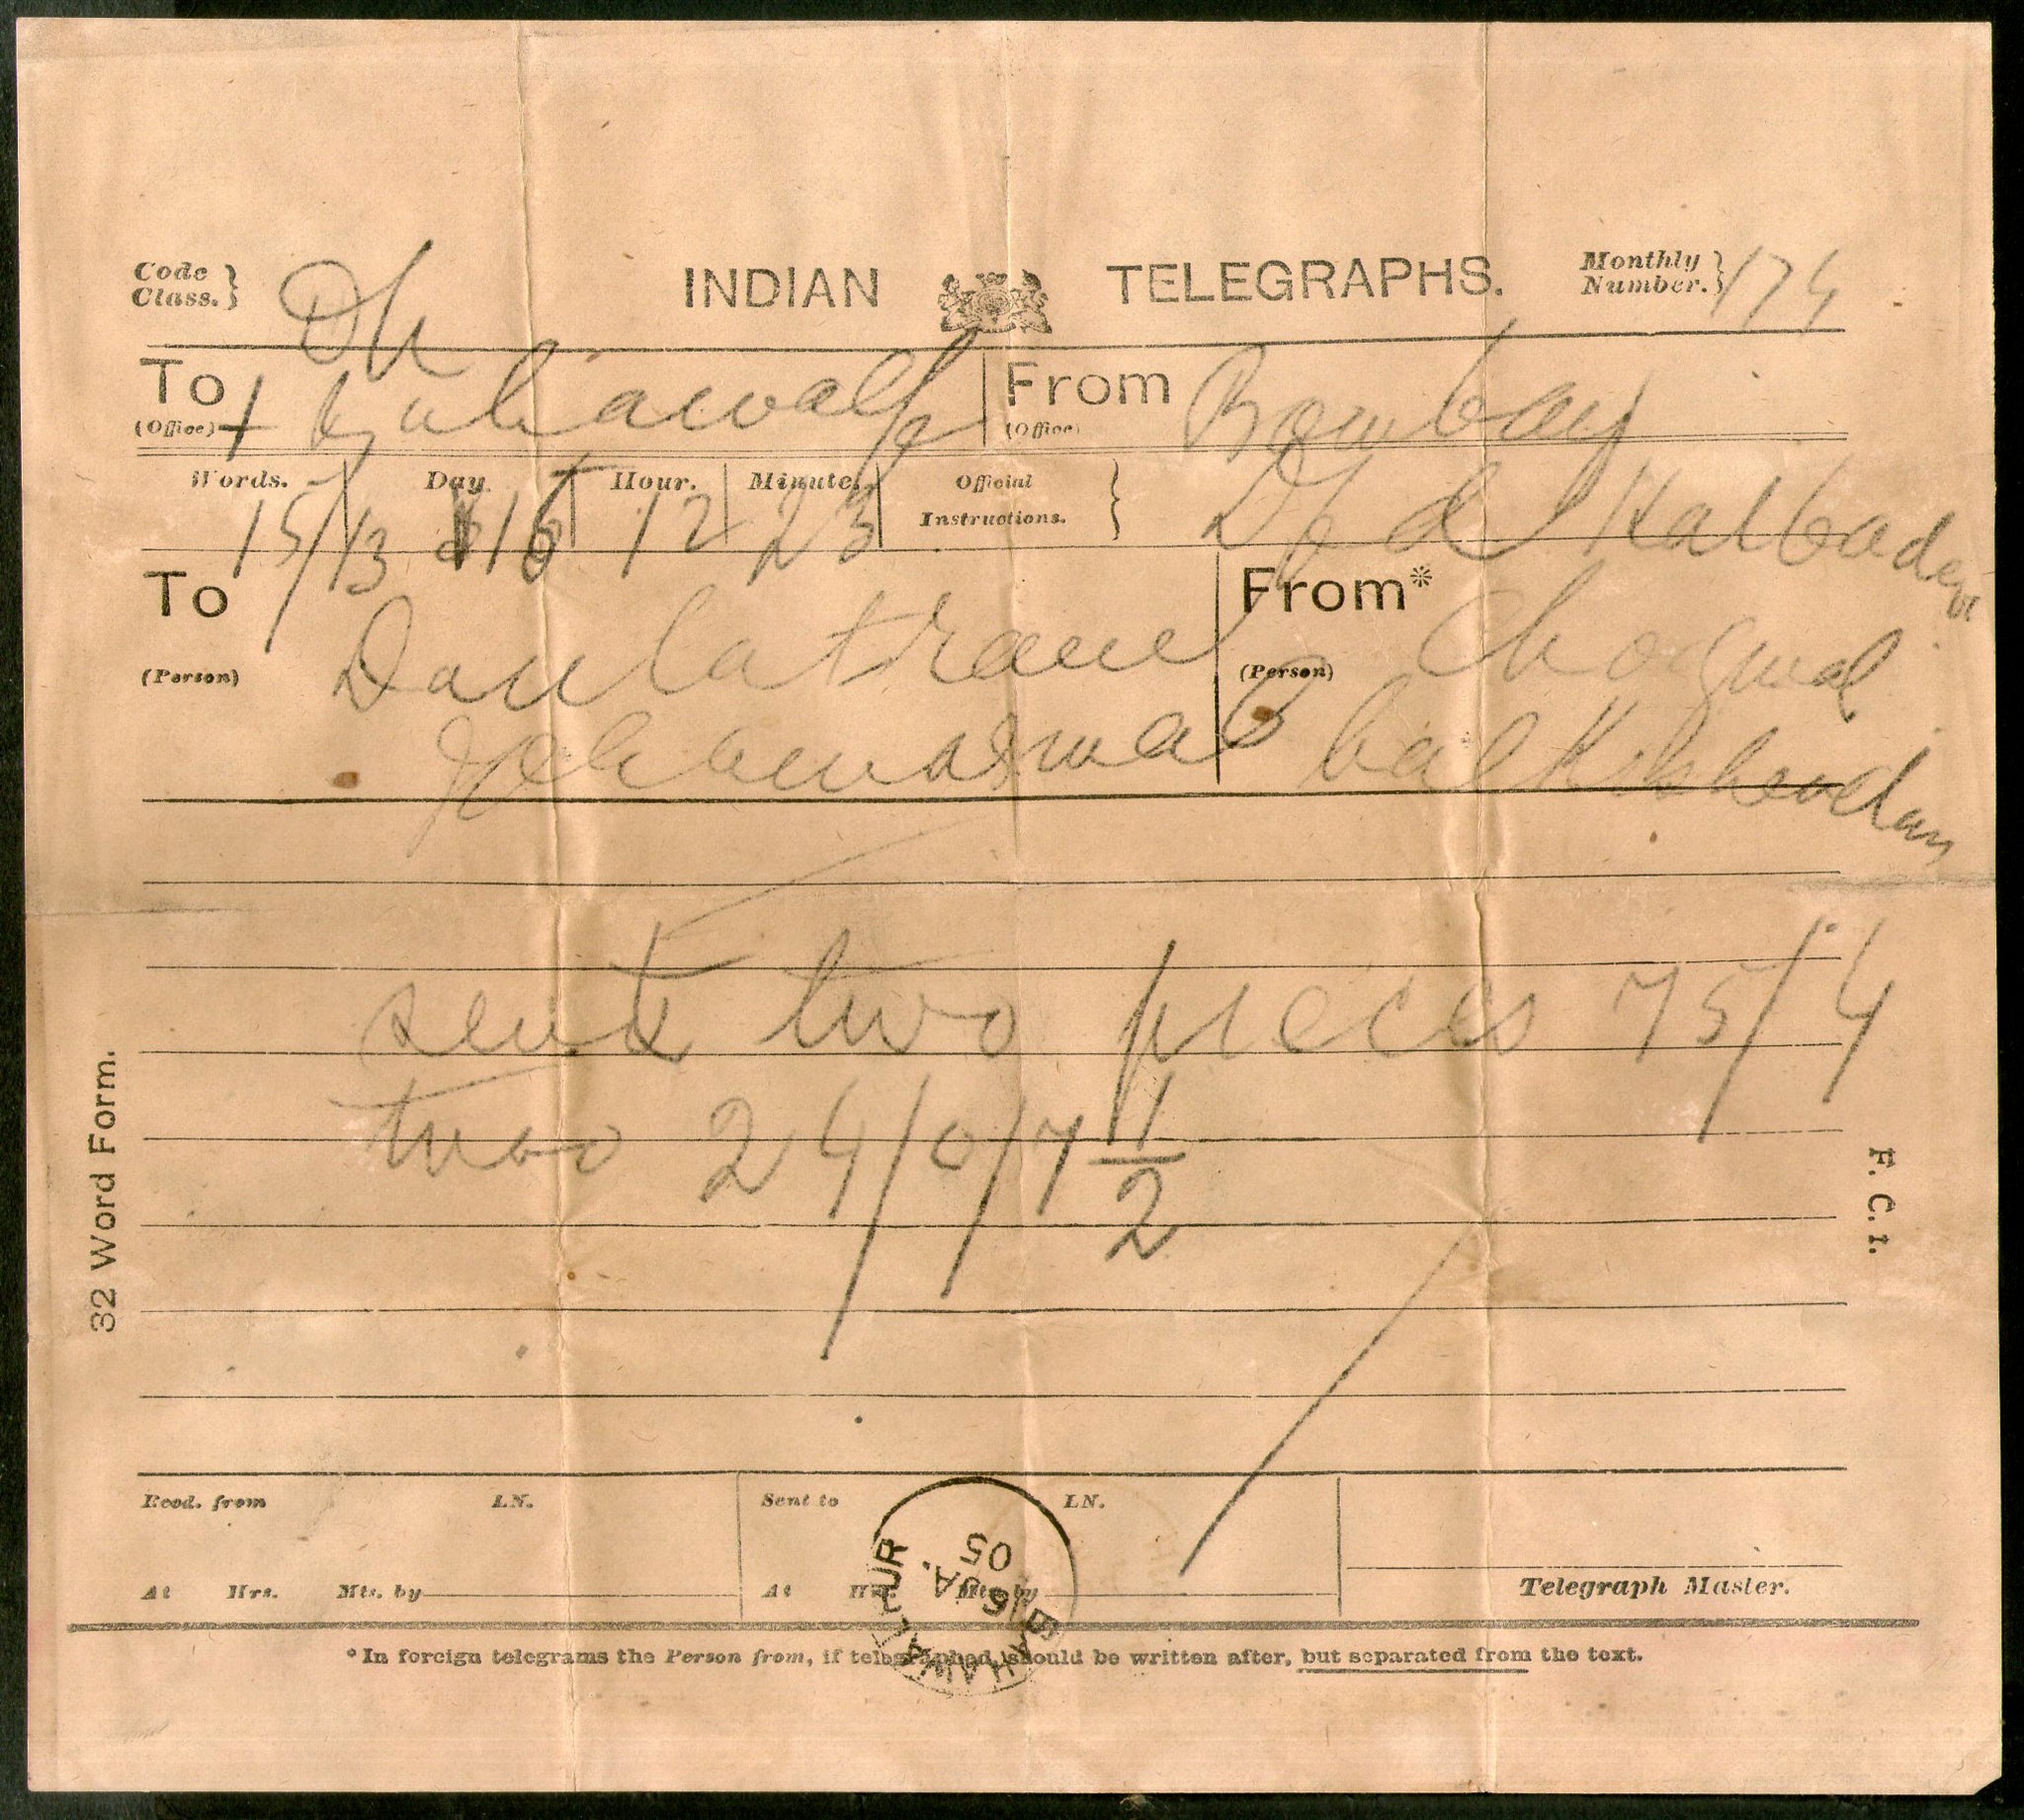 Code Class.} Dh
INDIAN TELEGRAPHS.
Monthly Number.} 174
To (Office)
From (Office) Bombay
Words. Day Hour. Minute. Official Instructions.
15/13 16 12 23 Kalbadevi
To (Person) Daulatram
From* (Person) Chogmal
balkishendas
sent two pieces 75/4
two 24/0/7 1/2
32 Word Form.
F. C. I.
Recd. from LN.
Sent to LN.
At Hrs. Mts. by
At Hrs. Mts. by
Telegraph Master.
BAHAWALPUR
16 JA.
05
*In foreign telegrams the Person from, if telegraphed, should be written after, but separated from the text.